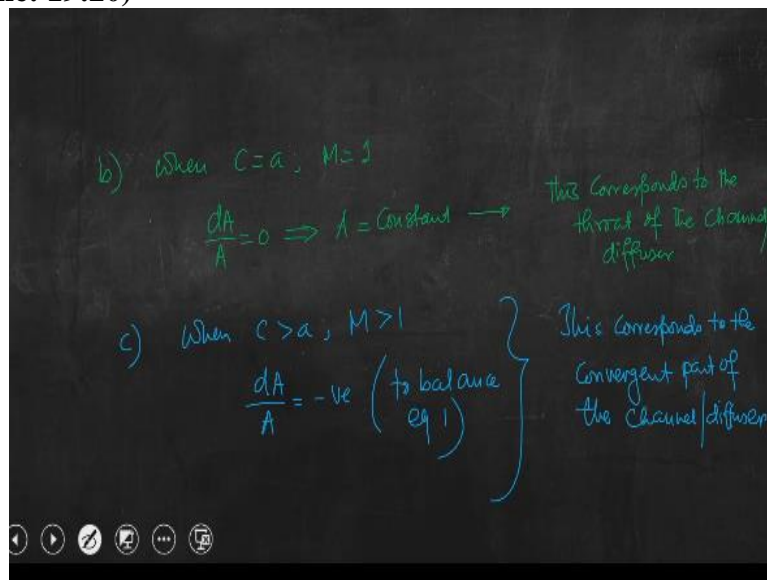 b) When C=a, M=1
dA/A = 0 ⇒ A = Constant → This Corresponds to the
throat of the Channel/
diffuser
c) When C>a, M>1
dA/A = -ve (to balance
eq 1)
This corresponds to the
Convergent part of
the Channel/diffuser